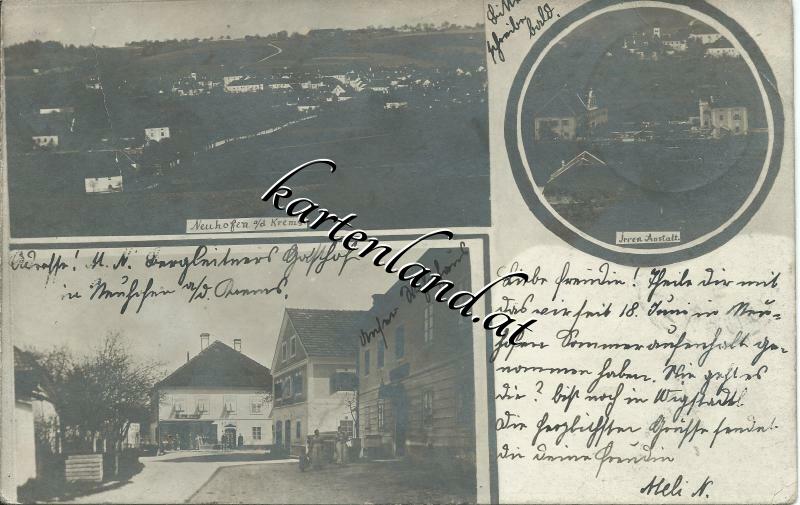 Bitte
schreibe
bald.
Neuhofen a/d Krems
Irren Anstalt.
kartenland.at
Adresse! M. N. Bergleitners Gasthof
in Neuhofen a/d. Krems.
Unser
Liebe Freundin! Theile dir mit
das wir seit 18. Juni in Neu-
hofen Sommeraufenthalt ge-
nommen haben. Wie geht es
dir? bist noch in Wigstadtl
Die herzlichsten Grüsse sendet
dir deine Freundin
Meli N.